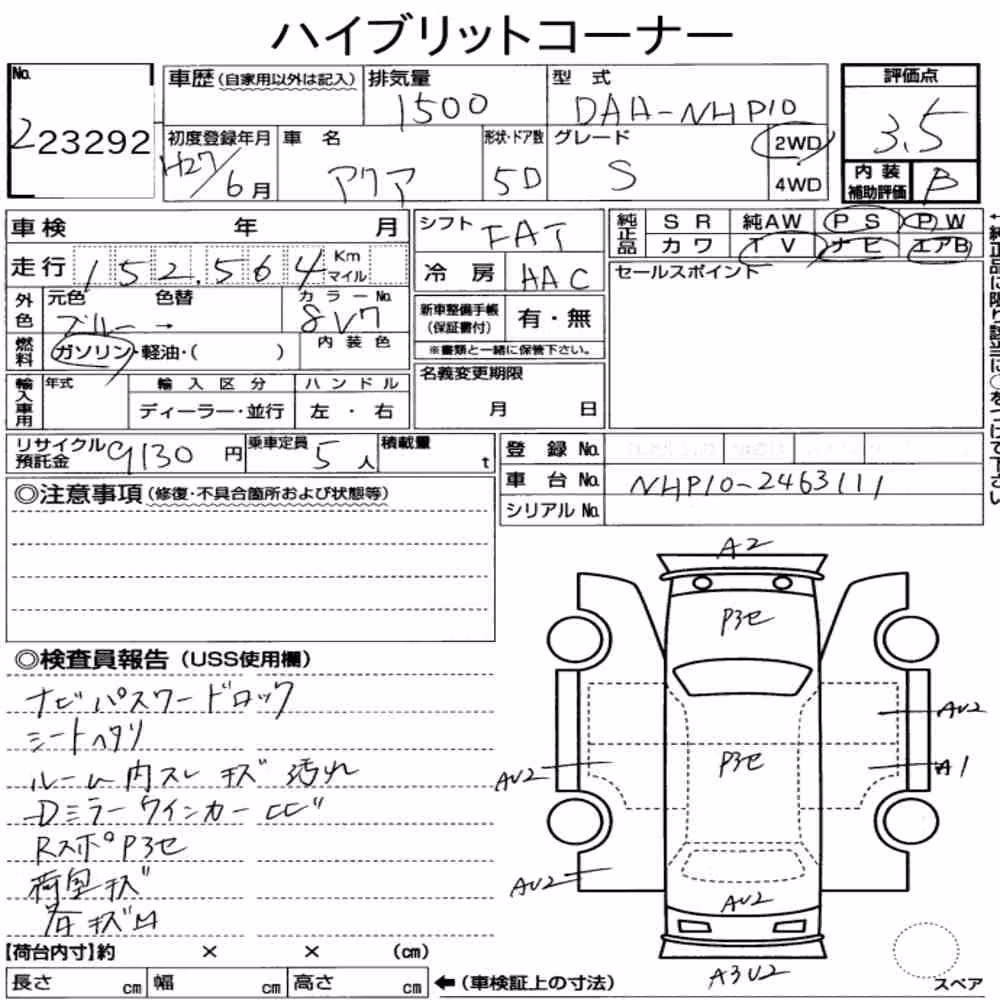 ハイブリットコーナー
No.
223292
車歴 (自家用以外は記入)
排気量
1500
型式
DAA-NHP10
評価点
3.5
初度登録年月
H27/6月
車名
アクア
形状・ドア数
5D
グレード
S
2WD
4WD
内装補助評価
B
車検 年 月
シフト
FAT
純正品
SR 純AW PS PW
カワ TV ナビ エアB
走行 152,564 Km マイル
冷房 AAC
セールスポイント
外色
元色 色替
ブルー →
カラーNo.
8V7
新車整備手帳(保証書付)
有・無
※書類と一緒に保管下さい。
燃料
ガソリン・軽油・( )
内装色
名義変更期限
月 日
輸入車用
年式
輸入区分
ディーラー・並行
ハンドル
左・右
リサイクル預託金 9130円
乗車定員 5人
積載量 t
登録No.
車台No. NHP10-2463111
シリアルNo.
◎注意事項(修復・不具合箇所および状態等)
◎検査員報告(USS使用欄)
ナビパスワードロック
シートヘタリ
ルーム内スレ キズ 汚れ
Dミラーウインカーヒビ
RスポP3セ
荷室キズ
【荷台内寸】約 × × (cm)
長さ cm 幅 cm 高さ cm
←(車検証上の寸法)
A2
P3セ
AU2
P3セ
A1
AU2
AU2
AU2
A3U2
スペア
←純正品に限り該当に○をつけて下さい